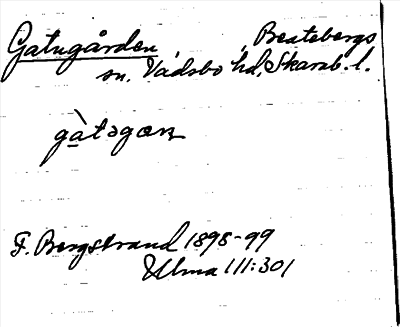 Gatugården, Beatebergs
sn. Vadsbo hd, Skarab. l.
gàtǝgæṇ
F. Bergstrand 1898-99
Ulma 111:301